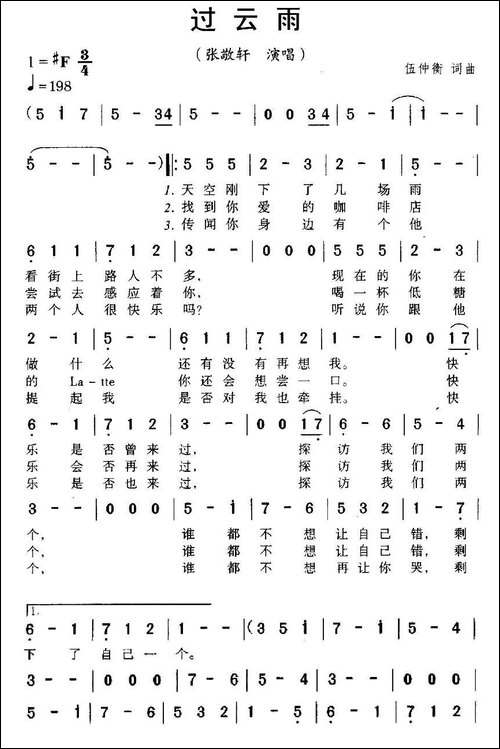 过云雨
(张敬轩 演唱)
1=♯F 3/4
♩=198
伍仲衡 词曲
(5 i 7 | 5 - 34 | 5 - i | 0 0 34 | 5 - i | i - - |
5 - - | 5 - -) ‖: 5 5 5 | 2 - 3 | 2 - 1 | 5 - - |
1.天空刚下了几场雨
2.找到你爱的咖啡店
3.传闻你身边有个他
6 1 1 | 7 1 2 | 3 - - | 0 0 0 | 5 5 5 | 2 - 3 |
看街上路人不多, 现在的你在
尝试去感应着你, 喝一杯低糖
两个人很快乐吗? 听说你跟他
2 - 1 | 5 - - | 6 1 1 | 7 1 2 | 1 - - | 0 0 17 |
做什么 还有没有再想我。 快
的 La-tte 你还会想尝一口。 快
提起我 是否对我也牵挂。 快
6 - 1 | 7 1 2 | 3 - - | 0 0 17 | 6 - 1 | 7 1 2 |
乐是否曾来过, 探访我们两
乐会否再来过, 探访我们两
乐是否也来过, 探访我们两
3 - - | 0 0 0 | 5 - i | 7 - 6 | 5 3 2 | 1 - 7 |
个, 谁都不想让自己错,剩
个, 谁都不想让自己错,剩
个, 谁都不想再让你哭,剩
1.
6 - 1 | 7 1 2 | 1 - - | (3 5 i | 7 - i | 5 - 4 |
下了自己一个。
3 - - | 0 0 0 | 7 - 6 | 5 - 4 | 3 - - | 0 0 0 |
5 - i | 7 - i | 5 - 4 | 3 - - | 0 0 0 | 7 - 6 |